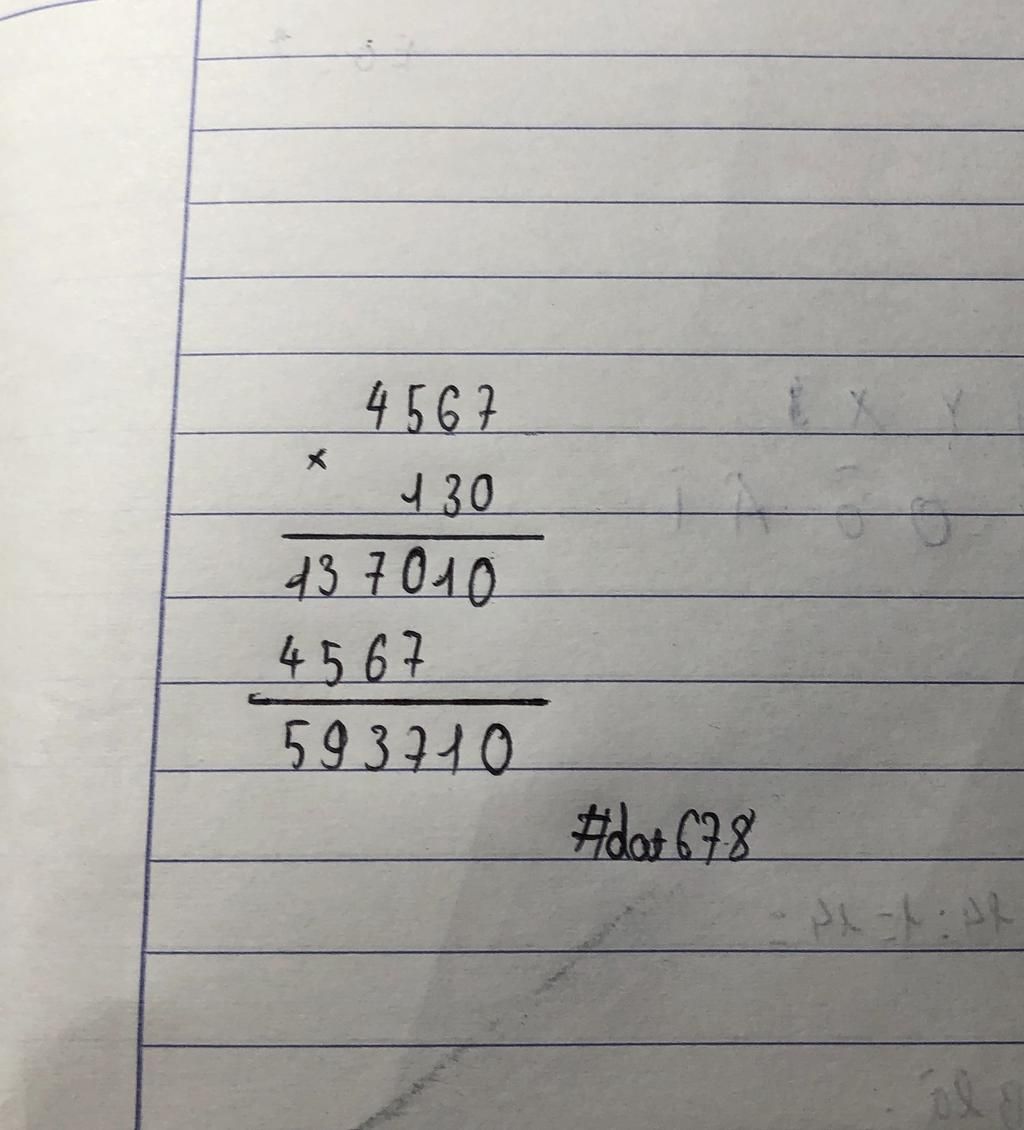 4567
×
130
137010
4567
593710
#dat678